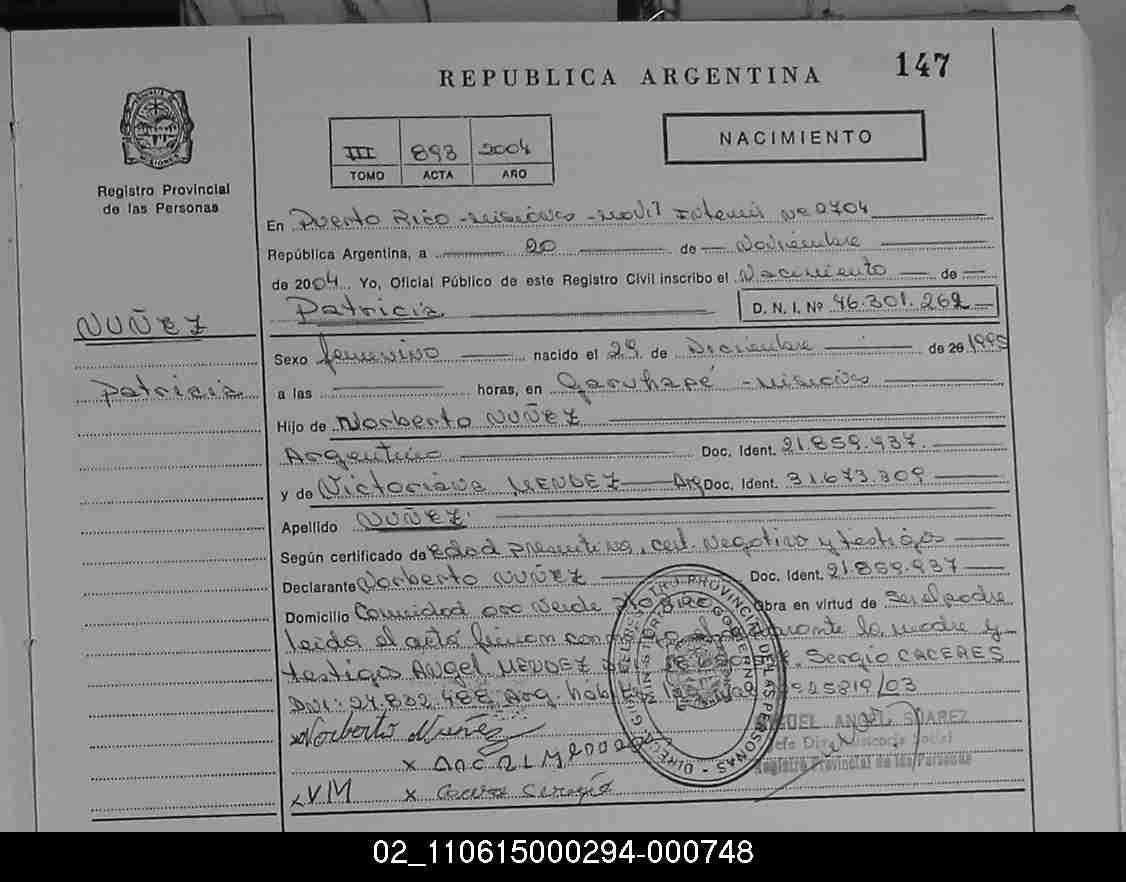 REPUBLICA ARGENTINA
147
III 893 2004
TOMO ACTA AÑO
NACIMIENTO
Registro Provincial
de las Personas
En Puerto Rico - Misiones - Movil Nº 2704
República Argentina, a 20 de Noviembre
de 2004. Yo, Oficial Público de este Registro Civil inscribo el Nacimiento de
Patricia D. N. I. Nº 46.301.262
NUÑEZ
Patricia
Sexo femenino nacido el 29 de Diciembre de 20 1995
a las horas, en Garuhapé - Misiones
Hijo de Norberto NUÑEZ
Argentino Doc. Ident. 21.859.937.
y de Victoriana MENDEZ Arg Doc. Ident. 31.673.309
Apellido NUÑEZ.
Según certificado de Edad presuntiva, cert. Negativo y testigos
Declarante Norberto NUÑEZ Doc. Ident. 21859.937
Domicilio Comunidad Verde Obra en virtud de Ser el padre
leída el acta firman la madre y
testigos ANGEL MENDEZ Sergio CACERES
DNI: 27.832.488 Arg. 25819/03
Norberto Nuñez
x
LVM x
DIRECC. GRAL. DEL REGISTRO PROVINCIAL DE LAS PERSONAS
MINISTERIO DE GOBIERNO
ANGEL SUAREZ
Registro Provincial de las Personas
02_110615000294-000748